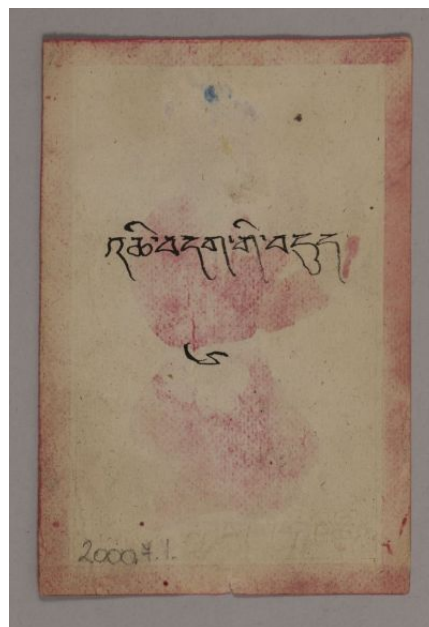 འཆི་བདག་གི་བདུད
2000.7.1.